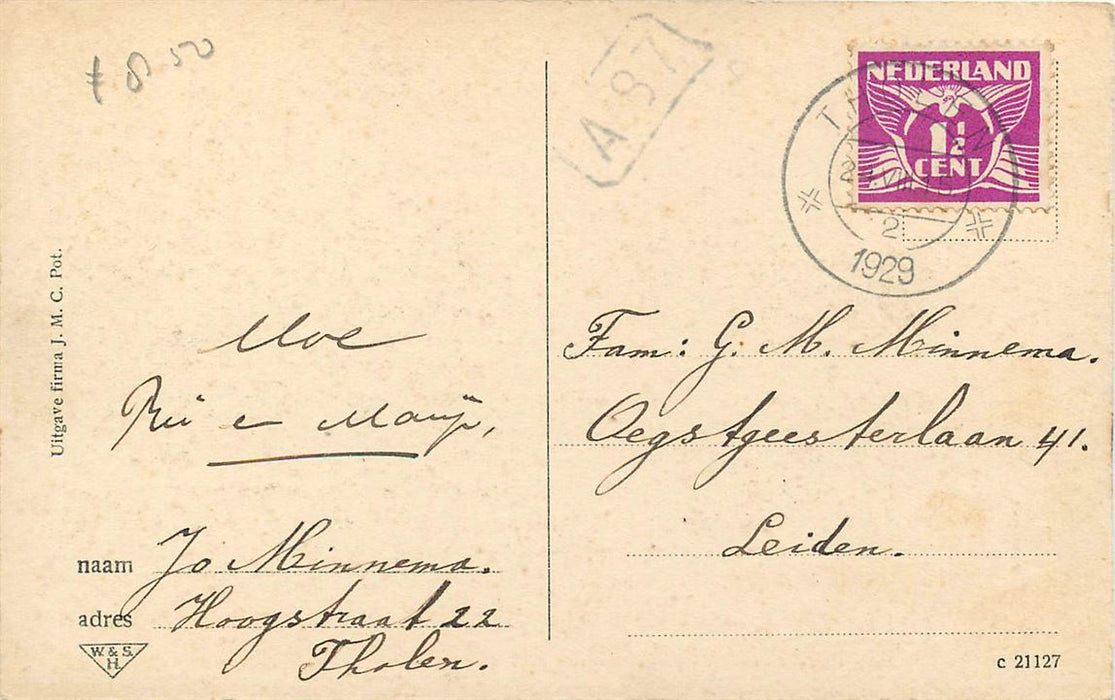 ƒ 8 50
A 87
NEDERLAND
1½
CENT
THOLEN
2
1929
Uitgave firma J. M. C. Pot.
Moe
en
naam Jo Minnema.
adres Hoogstraat 22
Tholen.
W. & S.
H.
Fam: G. M. Minnema.
Oegstgeesterlaan 41.
Leiden.
c 21127